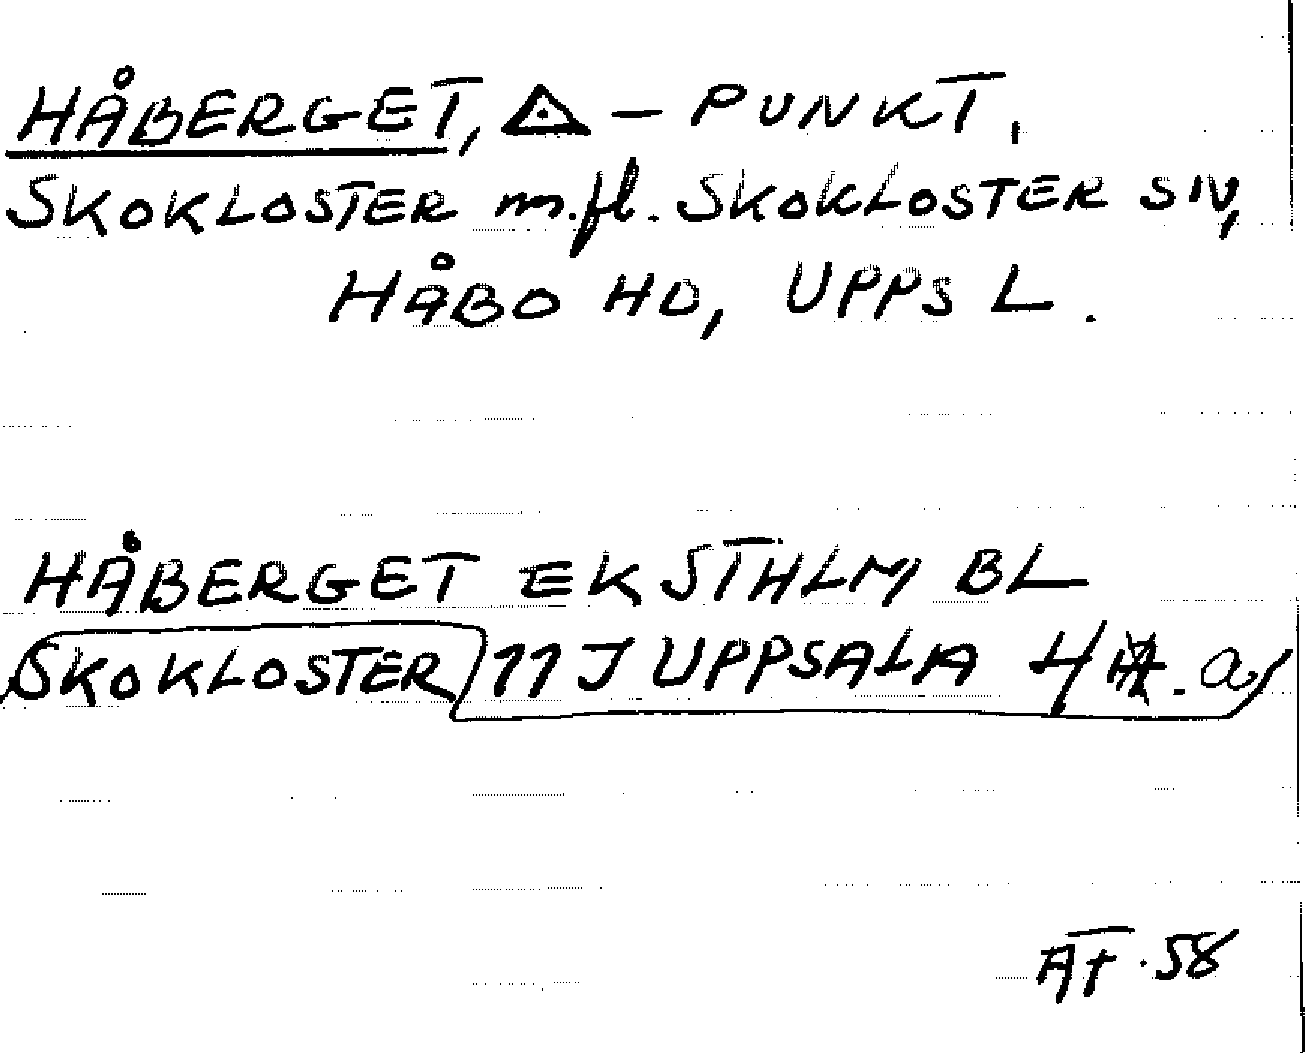 HÅBERGET, △ - PUNKT.
SKOKLOSTER m.fl. SKOKLOSTER SN,
HÅBO HD, UPPS L.
HÅBERGET EK STHLM BL
SKOKLOSTER 11 J UPPSALA 4 . a
AT. 58